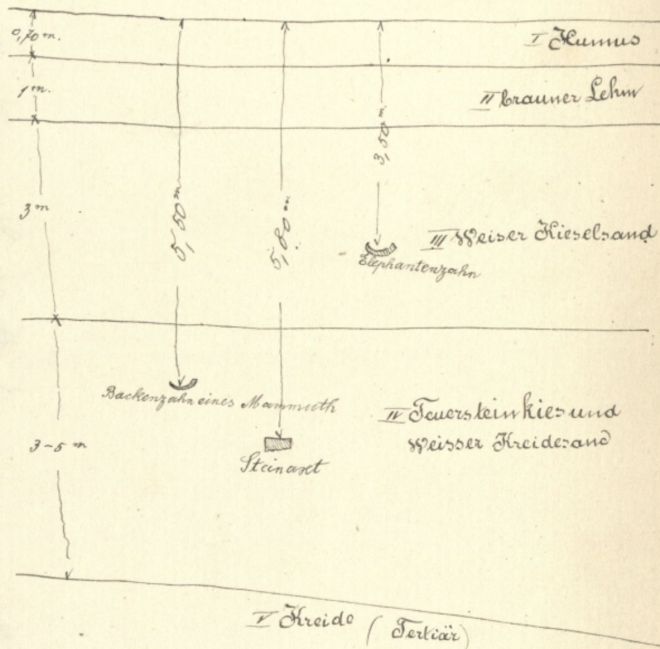 0,70 m.
I Humus
1 m.
II brauner Lehm
3 m
5,50 m
5,80 m
3,50 m
III Weiser Kieselsand
Elephantenzahn
Backenzahn eines Mammuth
3-5 m
Steinaxt
IV Feuersteinkies und
Weisser Kreidesand
V Kreide (Tertiär)